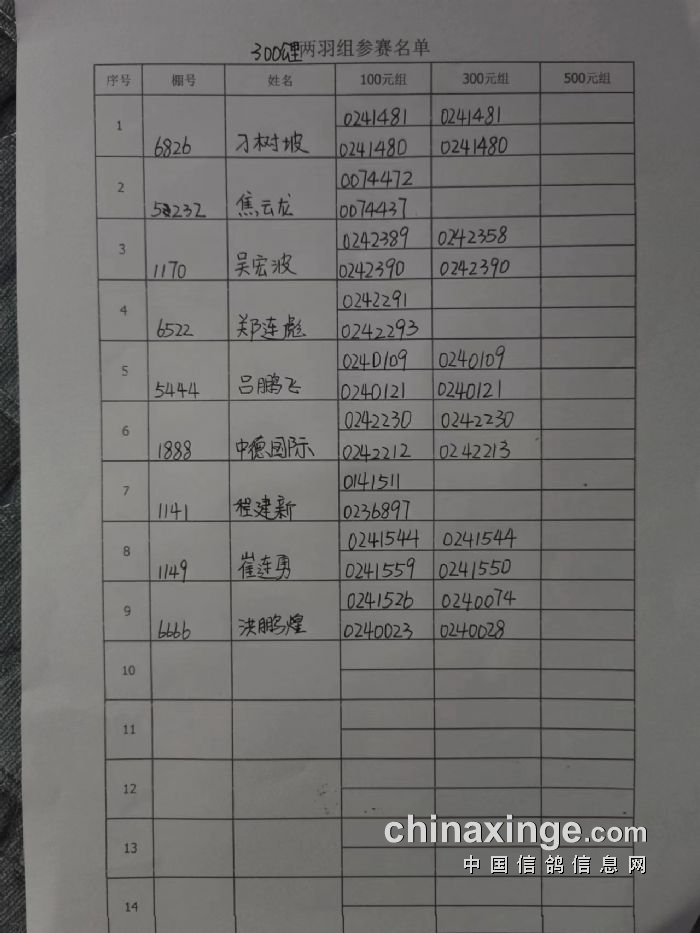 300鲤两羽组参赛名单
序号 棚号 姓名 100元组 300元组 500元组
1 0241481 0241481
6826 刁树坡 0241480 0241480
2 0074472
5232 焦云龙 0074437
3 0242389 0242358
1170 吴宏波 0242390 0242390
4 0242291
6522 郑连彪 0242293
5 0240109 0240109
5444 吕鹏飞 0240121 0240121
6 0242230 0242230
1888 中德国际 0242212 0242213
7 0141511
1141 程建新 0236897
8 0241544 0241544
1149 崔连勇 0241559 0241550
9 0241526 0240074
6666 洪鹏煌 0240023 0240028
10
11
12
13
14
chinaxinge.com
中国信鸽信息网